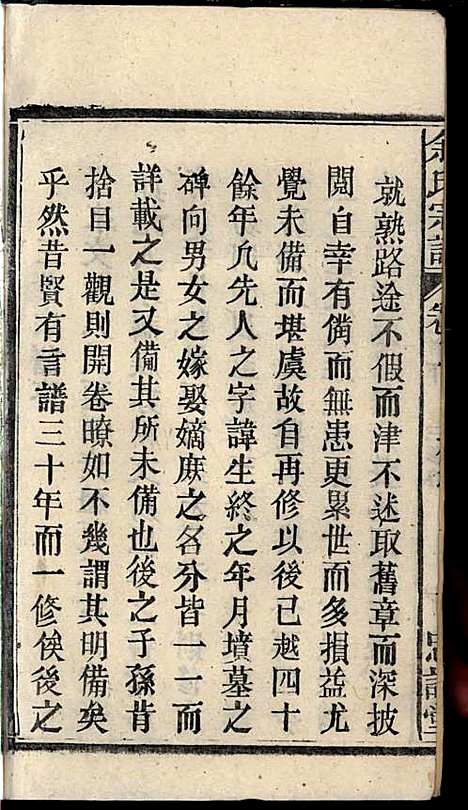 就熟路途不假而津不迷取舊章而深披
閱自幸有備而無患更累世而多損益尤
覺未備而堪虞故自再修以後已越四十
餘年凡先人之字諱生終之年月墳墓之
碑向男女之嫁娶嫡庶之名分皆一一而
詳載之是又備其所未備也後之子孫肯
捨目一觀則開卷瞭如不幾謂其明備矣
乎然昔賢有言譜三十年而一修俟後之